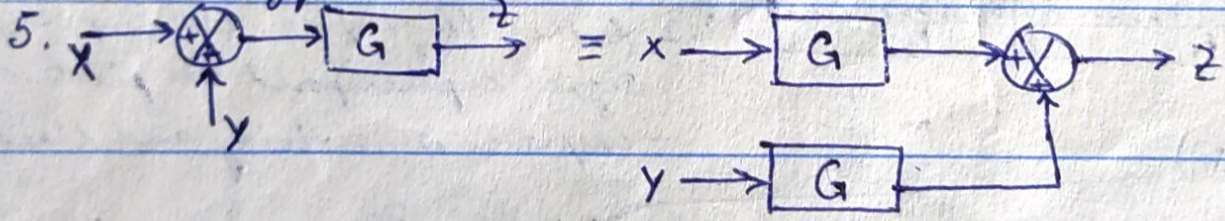 5. X + ± G Z ≡ X G + ± Z
Y
Y G